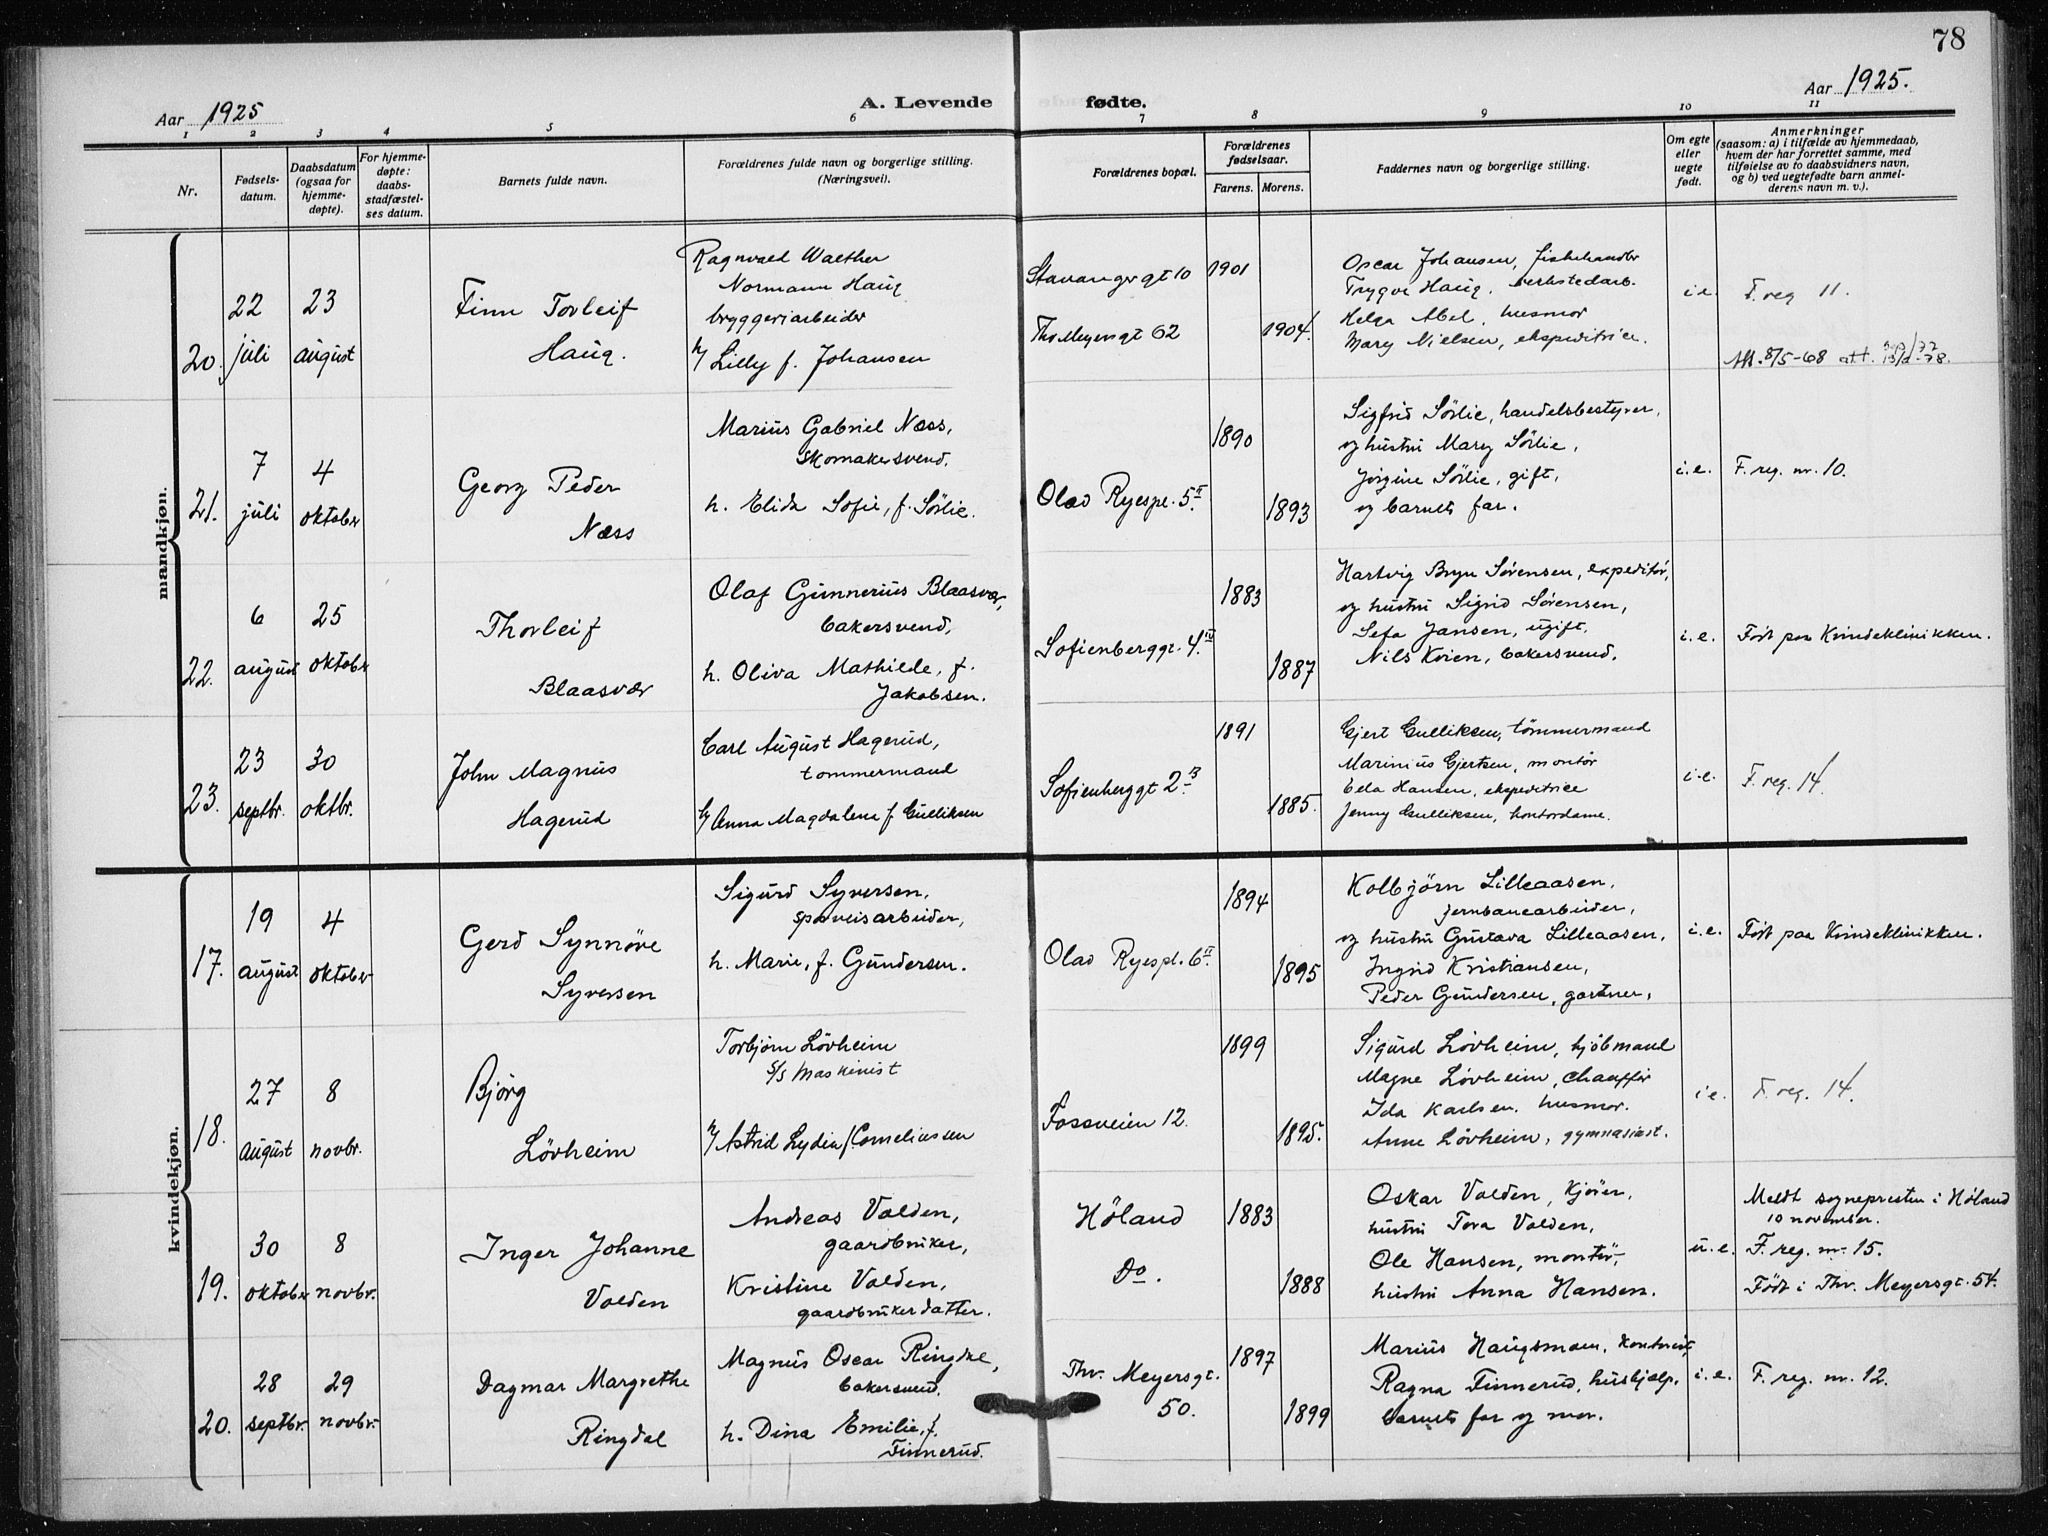 78
Aar 1925
A. Levende
fødte.
Aar 1925.
1 2 3 4 5 6 7 8 9 10 11
Nr.
Fødsels-
datum.
Daabsdatum
(ogsaa for
hjemme-
døpte).
For hjemme-
døpte:
daabs-
stadfæstel-
ses datum.
Barnets fulde navn.
Forældrenes fulde navn og borgerlige stilling.
(Næringsvei).
Forældrenes bopæl.
Forældrenes
fødselsaar.
Farens. Morens.
Faddernes navn og borgerlige stilling.
Om egte
eller
uegte
født.
Anmerkninger
(saasom: a) i tilfælde av hjemmedaab,
hvem der har forrettet samme, med
tilføielse av to daabsvidners navn,
og b) ved uegtefødte barn anmel-
derens navn m. v.).
mandkjøn.
20.
22
juli
23
august
Finn Torleif
Haug.
Ragnvald Walther
Normann Haug
bryggeriarbeider
h/ Lilly f. Johansen
Stavangergt 10
Thv Meyersgt 62
1901
1904.
Oscar Johansen, fiskehandler
Trygve Haug, verkstedarb.
Helga Abel, husmor
Mary Nielsen, ekspeditrice.
i.e.
F. reg 11.
Att. 8/5-68 att.
21.
7
juli
4
oktober
Georg Peder
Næss
Marius Gabriel Næss,
skomakersvend.
h. Elida Sofie, f. Sörlie.
Olav Ryespl. 5 II
1890
1893
Sigfrid Sörlie, handelsbestyrer,
og hustru Mary Sörlie,
Jörgine Sörlie, gift,
og barnets far.
i.e.
F. reg. nr. 10.
22.
6
august
25
oktober
Thorleif
Blaasvær
Olaf Gunnerius Blaasvær,
bakersvend,
h. Oliva Mathilde, f.
Jakobsen.
Sofienberggt. 4. IV
1883
1887
Hartvig Bryn Sörensen, expeditör,
og hustru Sigrid Sörensen,
Sefa Jansen, ugift,
Nils Kvien, bakersvend.
i.e.
Födt paa Kvindeklinikken.
23.
23
septbr.
30
oktbr.
John Magnus
Hagerud
Carl August Hagerud,
tømmermand
h/ Anna Magdalena f Gulliksen
Sofienberggt 2
1891
1885.
Gjert Gulliksen, tömmermand
Marinius Gjertsen, montör
Hansen, ekspeditrice
Jenny Gulliksen, kontordame.
i.e.
F. reg. 14.
kvindekjøn.
17.
19
august
4
oktober
Gerd Synnöve
Syversen
Sigurd Syversen,
sporveisarbeider,
h. Marie, f. Gundersen.
Olav Ryespl. 6 II
1894
1895
Kolbjörn Lilleaasen,
jernbanearbeider,
og hustru Gustava Lilleaasen,
Ingrid Kristiansen,
Peder Gundersen, gartner,
i.e.
Födt paa Kvindeklinikken.
18.
27
august
8
novbr.
Bjørg
Lövheim
Torbjørn Lövheim
s/s Maskinist
h/ Astrid Lydia f. Corneliussen
Fossveien 12.
1899
1895.
Sigurd Lövheim, kjöbmand
Magne Lövheim, chauffør
Ida Karlsen, husmor.
Anne Lövheim, gymnasiast.
i e.
F. reg. 14.
19.
30
oktober
8
novbr.
Inger Johanne
Valden
Andreas Valden,
gaardbruker,
Kristine Valden,
gaardbrukerdatter.
Höland
Do.
1883
1888
Oskar Valden, kjörer,
hustru Tora Valden,
Ole Hansen, montör,
hustru Anna Hansen.
u.e.
Meldt sogneprestin i Höland
10 november.
F. reg. nr. 15.
Födt i Thv. Meyersgt. 54.
20.
28
septbr.
29
novbr.
Dagmar Margrethe
Ringdal
Magnus Oscar Ringdal,
bakersvend.
h. Dina Emilie, f.
Finnerud.
Thv. Meyersgt.
50.
1897
1899
Marius Haugsmoen, kontorist,
Ragna Finnerud, hushjælp,
barnets far og mor.
i.e.
F. reg. nr. 12.